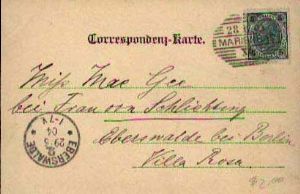 28
MARIE
Correspondenz-Karte.
Miss Mac Gee
bei Frau von Schlichting
Eberswalde bei Berlin
Villa Rosa
EBERSWALDE
29 5
04
1-7V
$2.00